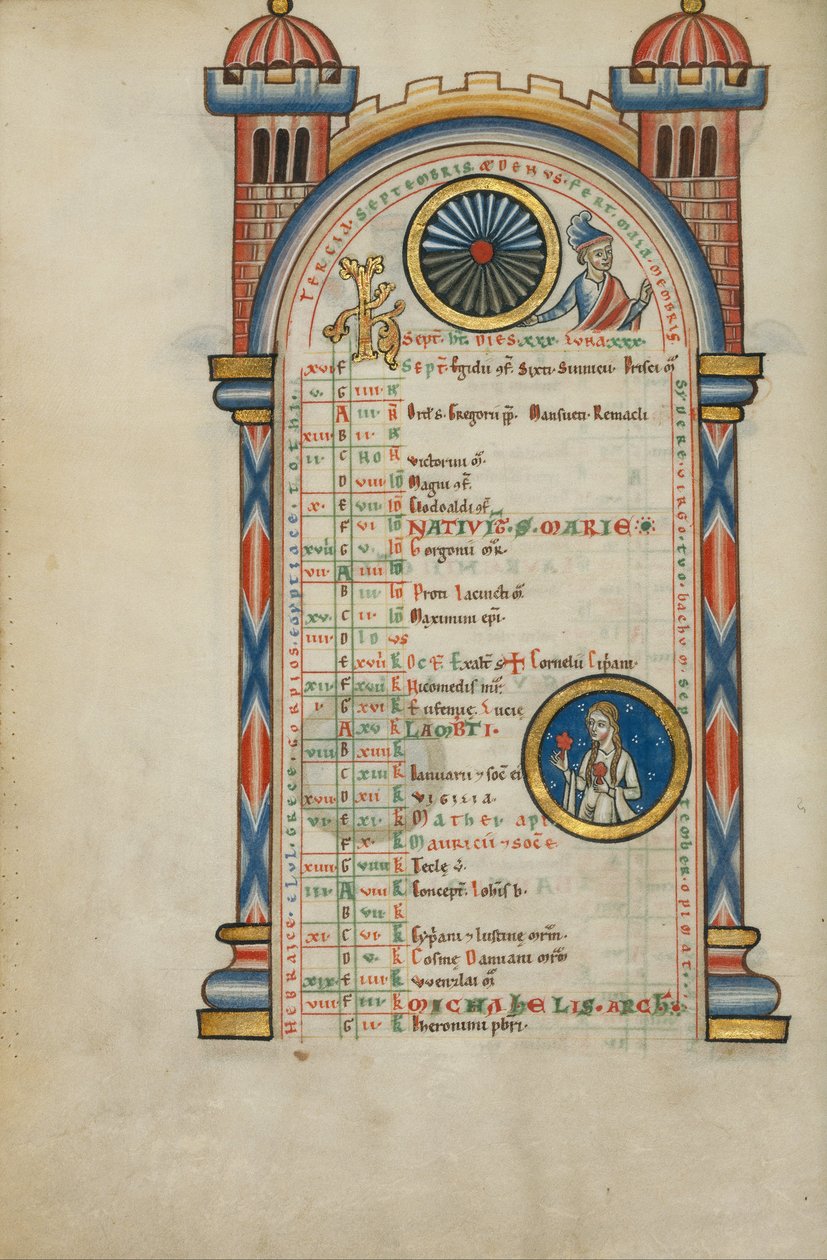 TERCIA · SEPTEMBRIS · ET DENUS · FERT · MALA · MEMBRIS
K
Sept. ht. DIES · XXX · LUNA · XXX ·
xvi F Sept. Egidii cf. Sixti · Sinnicii · Prisci m
v · G iiii · N
A iii · N Ord s · Gregorii pp · Mansueti · Remacli
xiii B ii · N
ii · C NO N Victorini m ·
D viii · ID Magni cf.
x · E vii · ID Clodoaldi cf
F vi ID NATIVIT · S · MARIE
xvii G v · ID Gorgonii mr ·
vii · A iiii ID
B iii · ID Proti Iacincti m
xv · C ii · ID Maximini epi ·
iiii D ID US
E xviii K Oct Exalt s + Cornelii Cipani ·
xii · F xvii K Nicomedis mr
i · G xvi K Eufemię · Lucię
A xv K LAMBTI ·
viii B xiiii K
C xiii K Ianuarii 7 soc ei
xvii D xii K VIGILIA ·
vi · E xi · K Mathei apli
F x · K Mauricii 7 soc
xiiii G viiii K Teclę v ·
iii · A viii K Concept Iohis b ·
B vii · K
xi · C vi · K Cypani 7 Iustinę mrm ·
D v · K Cosmę Damiani mrm
xix E iiii K Wenzlai m
viii · F iii · K MICHAHELIS · ARCH ·
G ii · K Iheronimi pbri ·
HEBRAICE · ELUL · GRECE · GORPIOS · EGYPTIACE · TOTHI ·
SYDERE · VIRGO · TUO · BACHUM · SEPTEMBER · OPIMAT ·